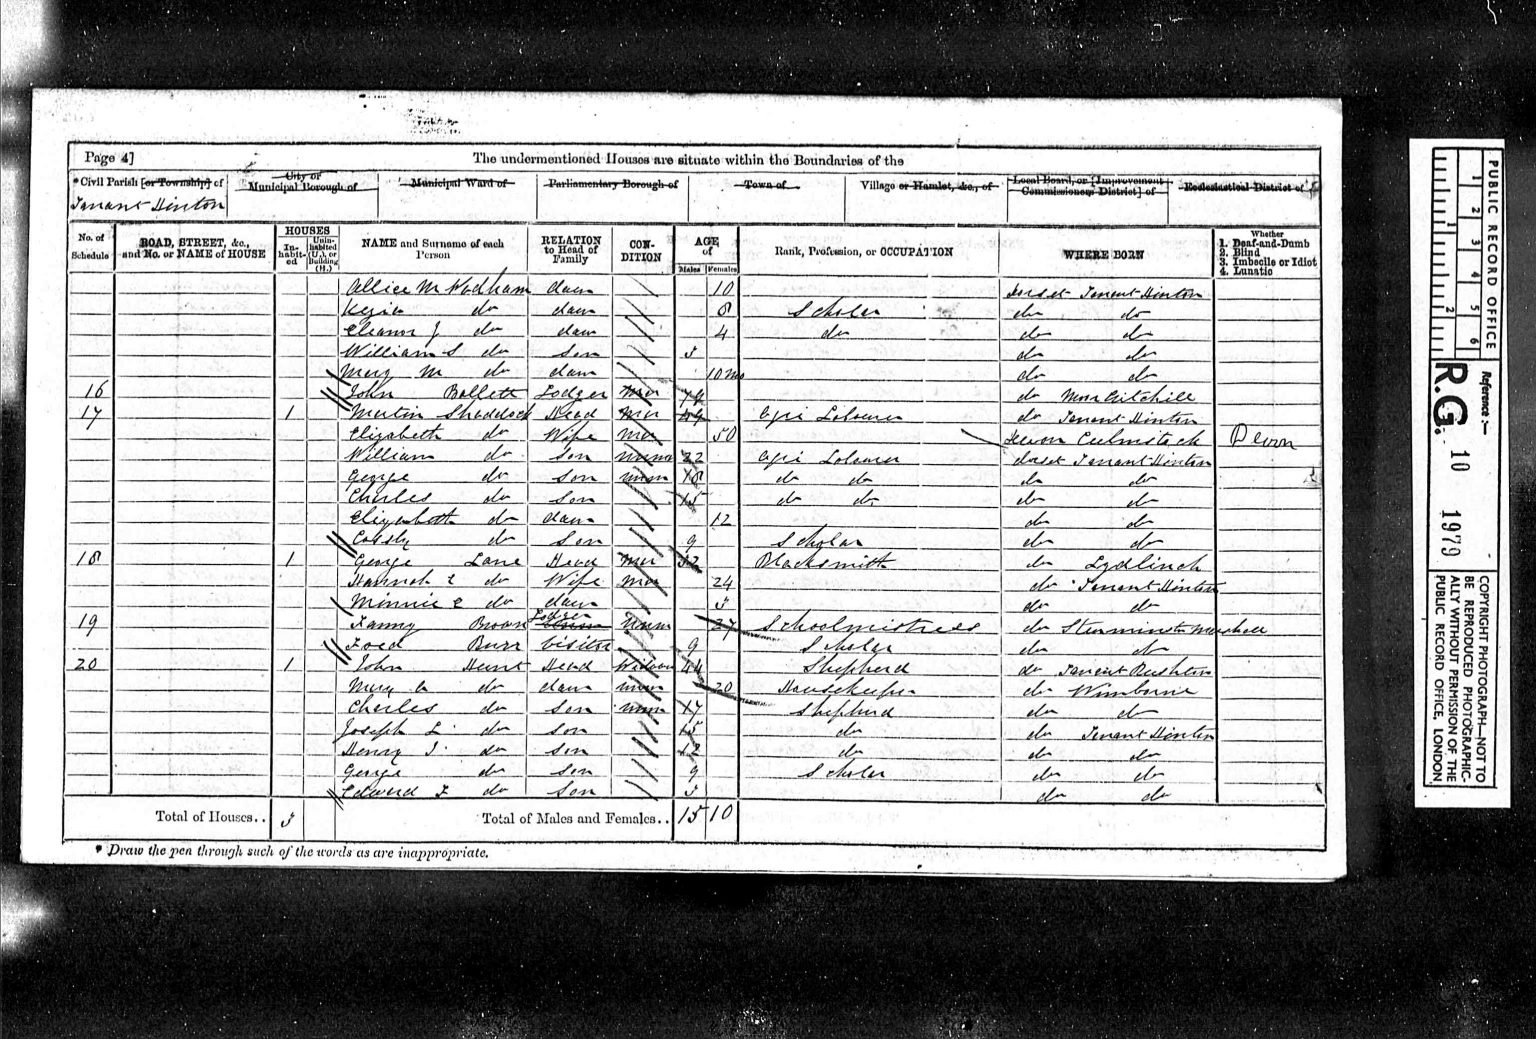 Page 4]
The undermentioned Houses are situate within the Boundaries of the
*Civil Parish [or Township] of
City or Municipal Borough of
Municipal Ward of
Parliamentary Borough of
Town of
Village or Hamlet, &c., of
Local Board, or [Improvement Commissioners District] of
Ecclesiastical District of
Tarrant Hinton
No. of Schedule
ROAD, STREET, &c., and No. or NAME of HOUSE
HOUSES
In-habit-ed
Unin-habited (U.), or Building (B.)
NAME and Surname of each Person
RELATION to Head of Family
CON-DITION
AGE of
Males
Females
Rank, Profession, or OCCUPATION
WHERE BORN
Whether
1. Deaf-and-Dumb
2. Blind
3. Imbecile or Idiot
4. Lunatic
Allice M Wodham daur 10 Dorset Tarrant Hinton
Kezia do daur 8 Scholar do do
Eleanor J do daur 4 do do do
William S do Son 3 do do
Mary M do daur 10 mo do do
16 John Bollett Lodger Mar do
17 1 Martin Shaddock Head Mar 49 Agri Labourer do Tarrant Hinton
Elizabeth do Wife Mar 50 Devon Culmstock Devon
William do Son unm 22 Agri Labourer dorset Tarrant Hinton
George do Son unm 18 do do do do
Charles do Son 15 do do do do
Elizabeth do daur 12 do do
do Son 9 Scholar do do
18 1 George Lane Head Mar 32 Blacksmith do Lydlinch
Hannah E do Wife Mar 24 do Tarrant Hinton
Minnie E do daur 3 do do
19 Fanny Brown Lodger Unm 27 Schoolmistress do Sturminster Marshall
Burr Visitor 9 Scholar do do
20 1 John Hunt Head Widower 44 Shepherd do Tarrant Rushton
Mary A do daur unm 20 Housekeeper do Wimborne
Charles do Son unm 17 Shepherd do do
Joseph L do Son 15 do do Tarrant Hinton
Henry J do Son 12 do do do
George do Son 9 Scholar do do
Edward F do Son 3 do do
Total of Houses.. 3
Total of Males and Females.. 15 10
* Draw the pen through such of the words as are inappropriate.
PUBLIC RECORD OFFICE
1 2 3 4 5 6
1 2
Reference :—
R.G. 10 1979
COPYRIGHT PHOTOGRAPH—NOT TO
BE REPRODUCED PHOTOGRAPHIC-
ALLY WITHOUT PERMISSION OF THE
PUBLIC RECORD OFFICE, LONDON